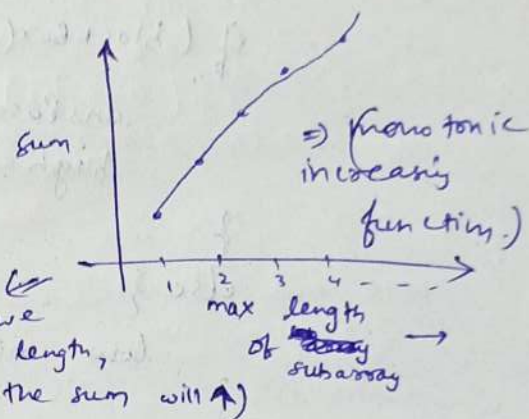 sum
=> (monotonic
increasing
function.)
1 2 3 4 - - -
max length
of subarray →
we
length,
the sum will ↑)